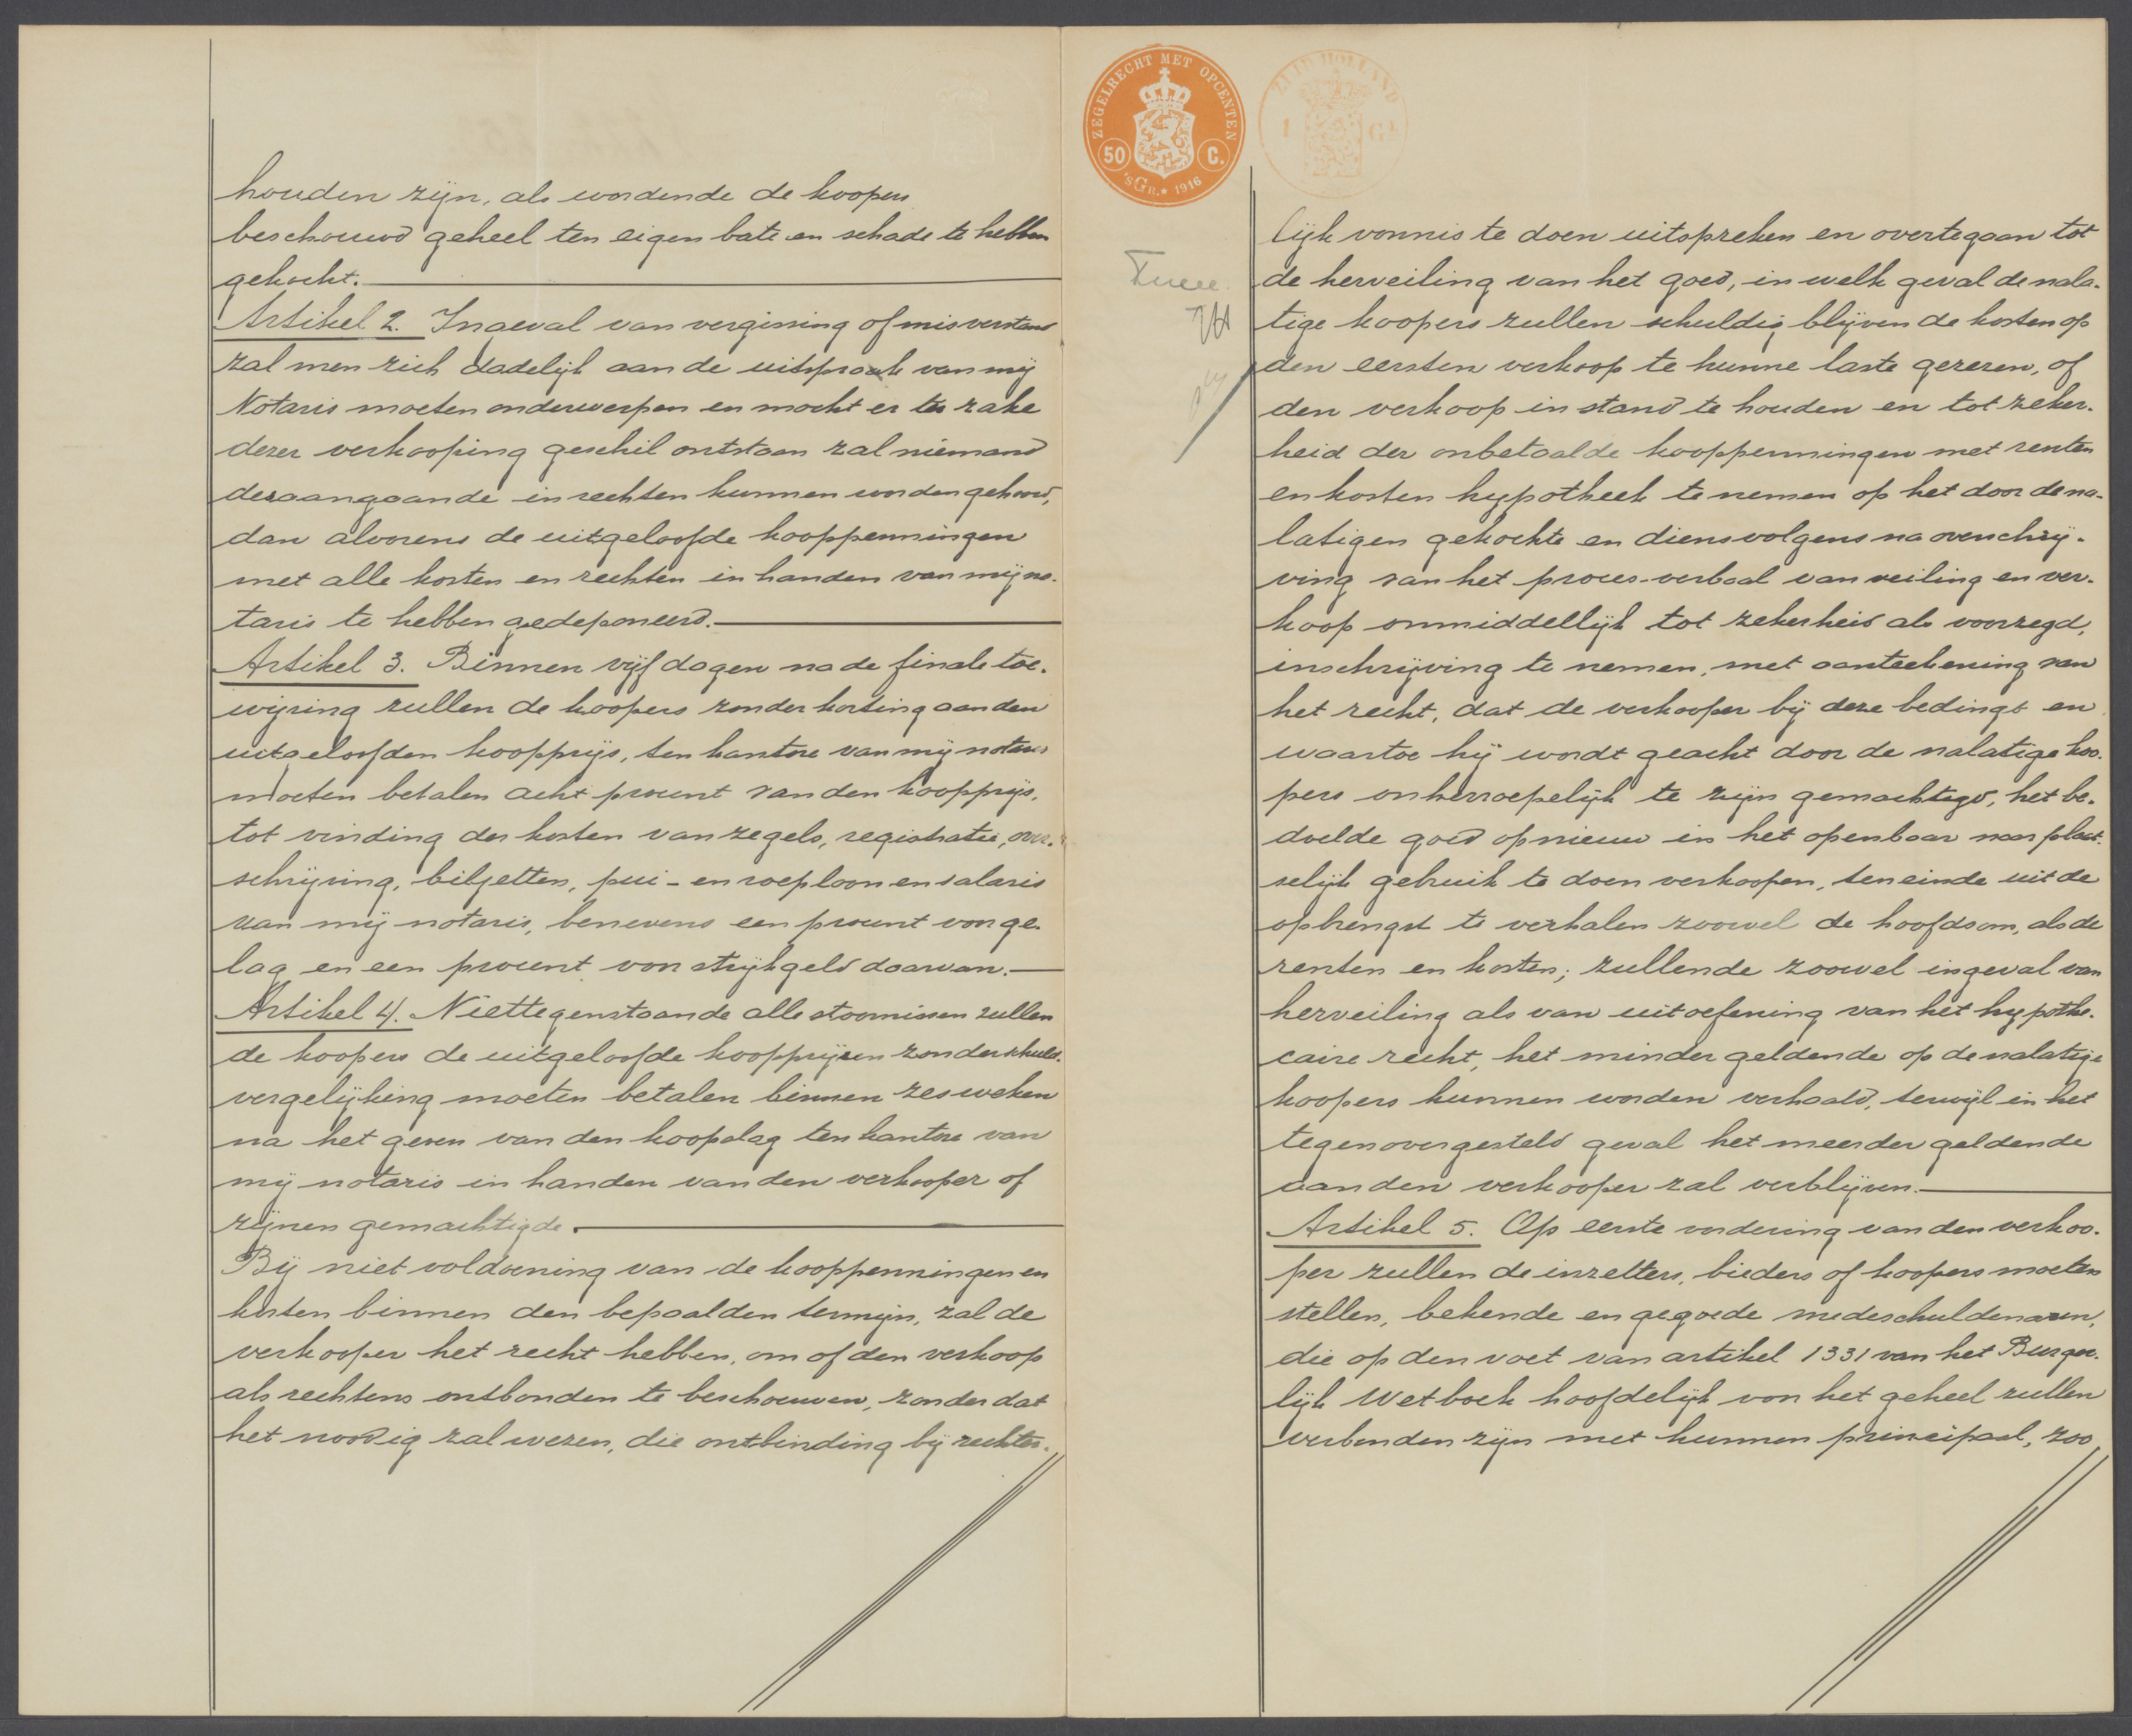 houden zijn, als wordende de koopers
beschouwd geheel ten eigen bate en schade te hebben
gekocht.
Artikel 2. Ingeval van vergissing of misverstand
zal men zich dadelijk aan de uitspraak van mij
Notaris moeten onderwerpen en mocht er ter zake
dezer verkooping geschil ontstaan zal niemand
desaangaande in rechten kunnen worden gehoord,
dan alvorens de uitgeloofde kooppenningen
met alle kosten en rechten in handen van mij no-
taris te hebben gedeponeerd.
Artikel 3. Binnen vijf dagen na de finale toe-
wijzing zullen de koopers zonder korting aan den
uitgeloofden koopprijs, ten kantore van mij notaris
moeten betalen acht procent van den koopprijs,
tot vinding der kosten van zegels, registratie, over-
schrijving, biljetten, pui- en roeploon en salaris
van mij notaris, benevens een procent voor ge-
lag en een procent voor strijkgeld daarvan.
Artikel 4. Niettegenstaande alle stoornissen zullen
de koopers de uitgeloofde koopprijzen zonder schuld-
vergelijking moeten betalen binnen zes weken
na het geven van den koopslag ten kantore van
mij notaris in handen van den verkooper of
zijnen gemachtigde.
Bij niet voldoening van de kooppenningen en
kosten binnen den bepaalden termijn, zal de
verkooper het recht hebben, om of den verkoop
als rechtens ontbonden te beschouwen, zonder dat
het noodig zal wezen, die ontbinding bij rechter-
ZEGELRECHT MET OPCENTEN
50 C.
'sGR. * 1916
ZUID HOLLAND
1 Gl
Twee
lijk vonnis te doen uitspreken en overtegaan tot
de herveiling van het goed, in welk geval de nala-
tige koopers zullen schuldig blijven de kosten op
den eersten verkoop te hunne laste gerezen, of
den verkoop in stand te houden en tot zeker-
heid der onbetaalde kooppenningen met renten
en kosten hypotheek te nemen op het door de na-
latigen gekochte en diensvolgens na overschrij-
ving van het proces-verbaal van veiling en ver-
koop onmiddellijk tot zekerheid als voorzegd,
inschrijving te nemen, met aanteekening van
het recht, dat de verkooper bij deze bedingt en
waartoe hij wordt geacht door de nalatige koo-
pers onherroepelijk te zijn gemachtigd, het be-
doelde goed opnieuw in het openbaar naar plaat-
selijk gebruik te doen verkoopen, ten einde uit de
opbrengst te verhalen zoowel de hoofdsom, als de
renten en kosten; zullende zoowel ingeval van
herveiling als van uitoefening van het hypothe-
caire recht, het minder geldende op de nalatige
koopers kunnen worden verhaald, terwijl in het
tegenovergesteld geval het meerder geldende
aan den verkooper zal verblijven.
Artikel 5. Op eerste vordering van den verkoo-
per zullen de inzetters, bieders of koopers moeten
stellen, bekende en gegoede medeschuldenaren,
die op den voet van artikel 1331 van het Burger-
lijk Wetboek hoofdelijk voor het geheel zullen
verbonden zijn met hunnen principaal, zoo